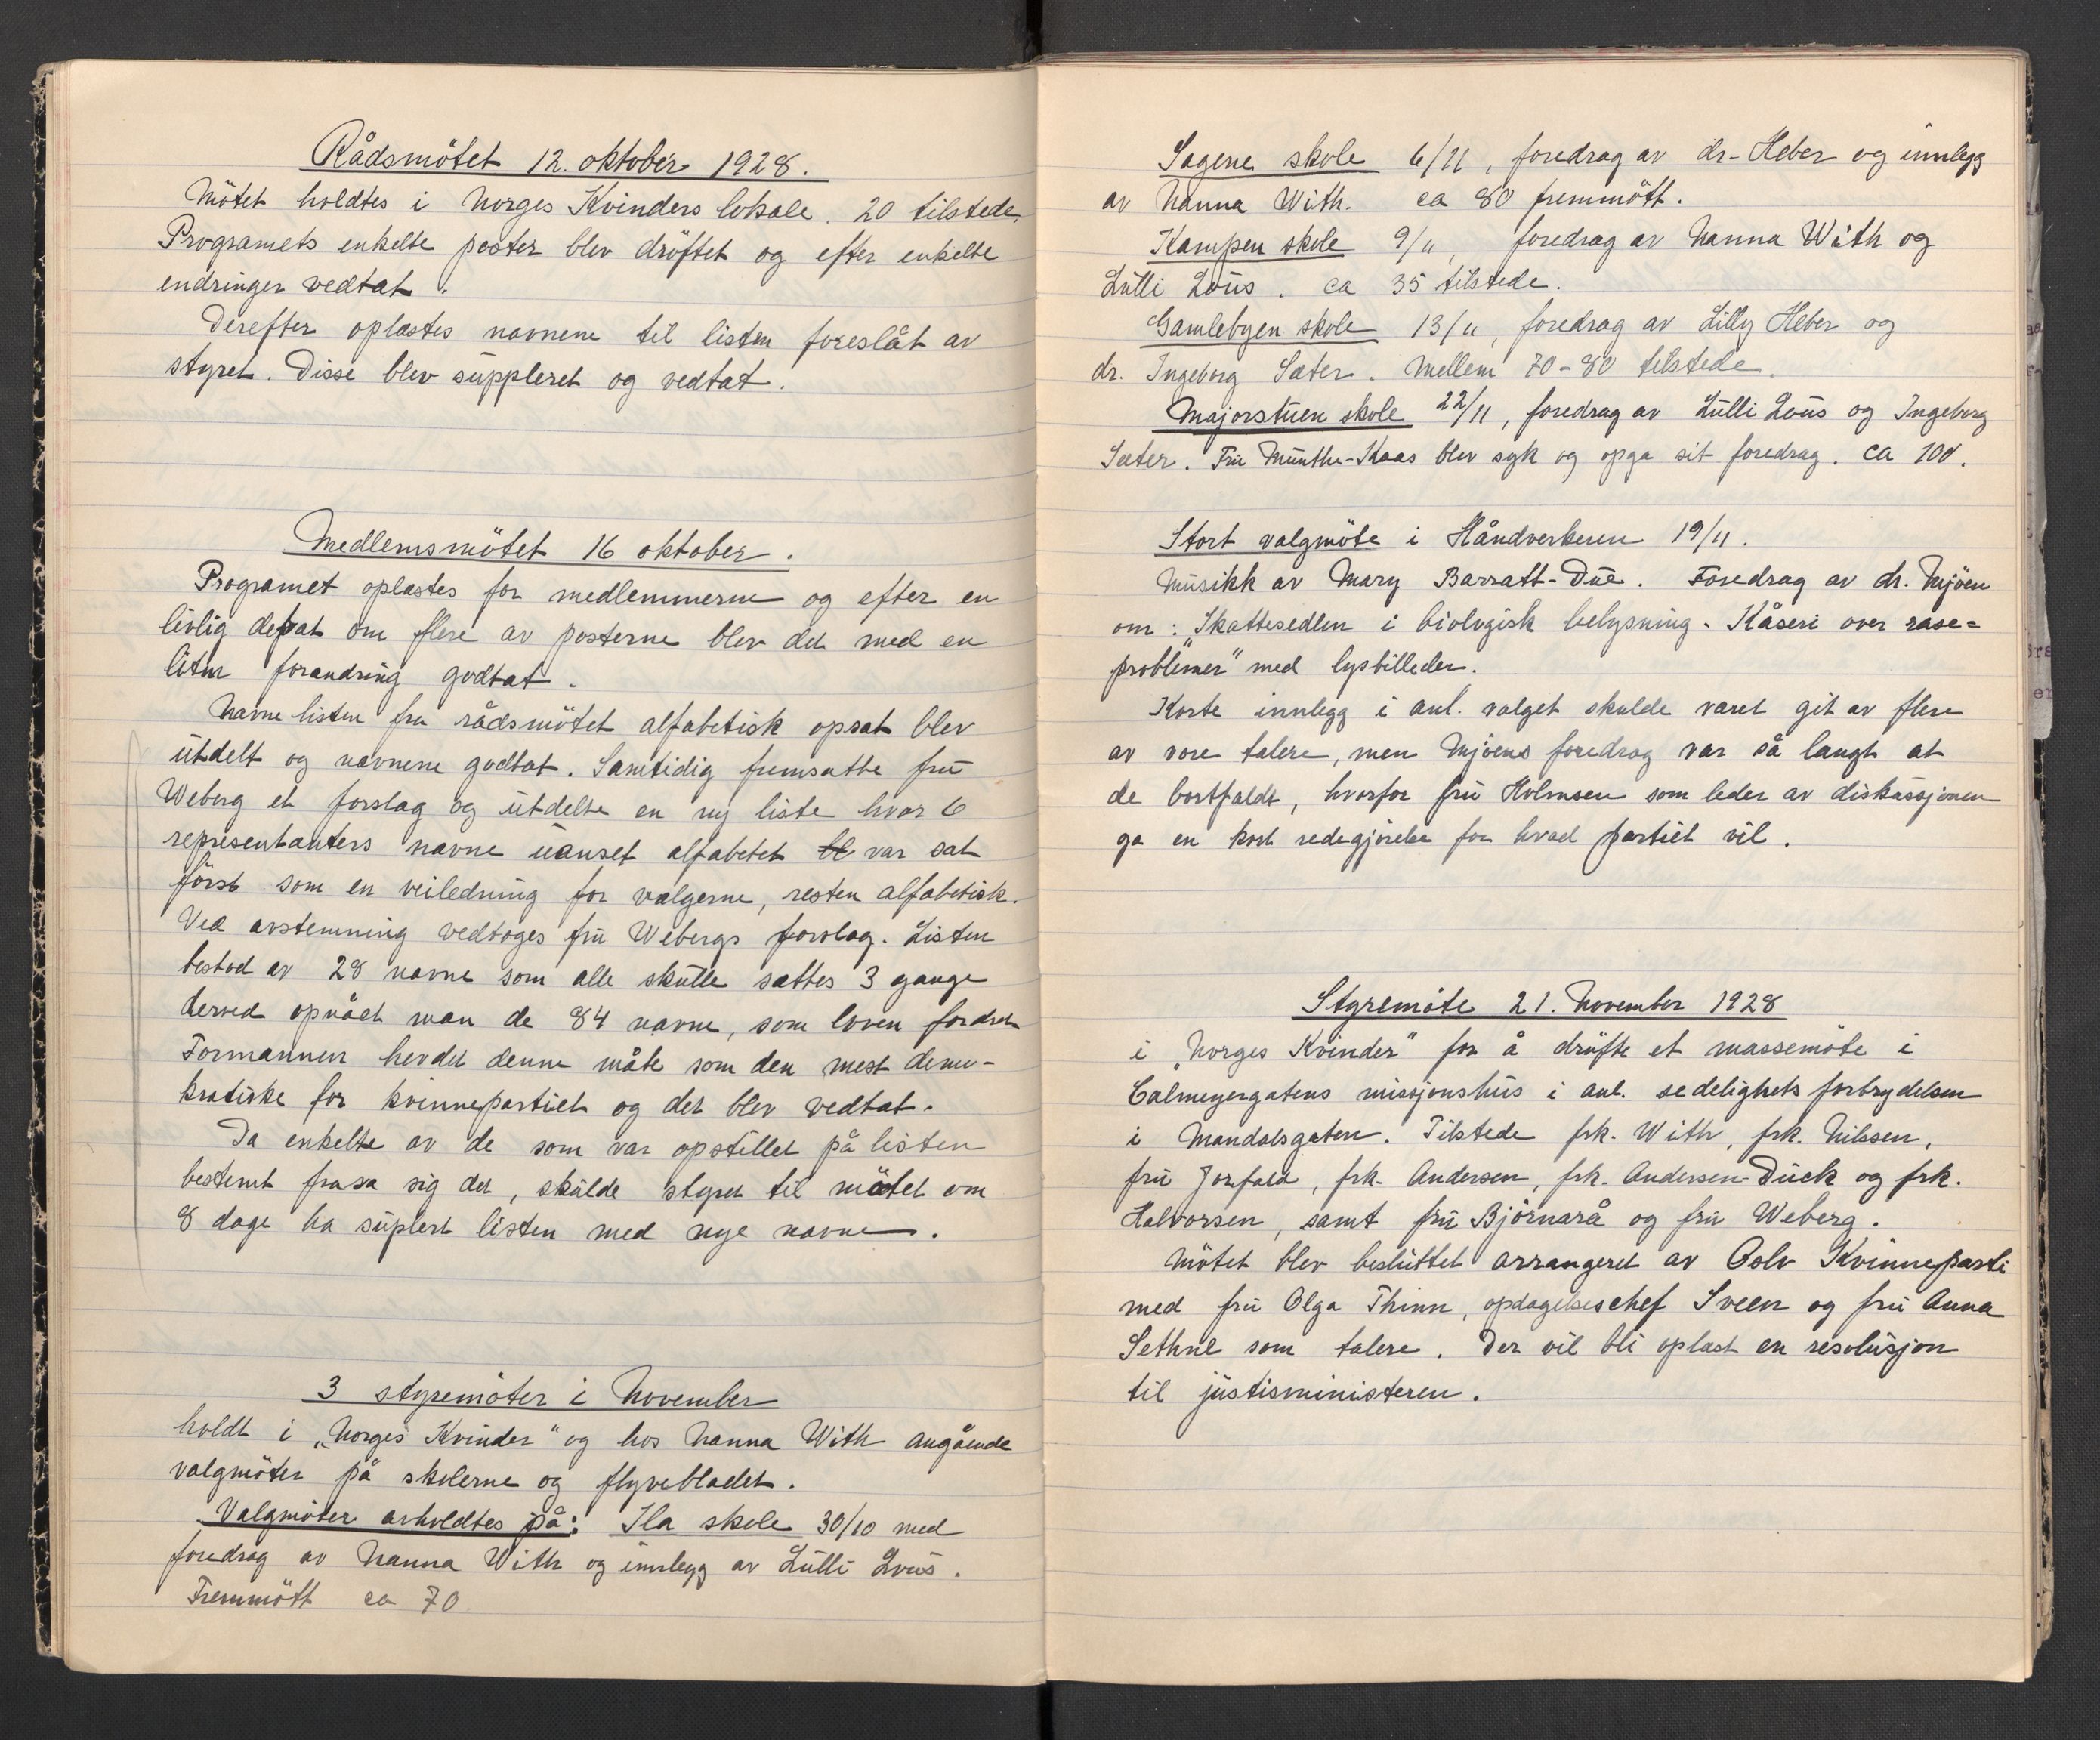 Rådsmötet 12. oktober 1928.
Mötet holdtes i Norges Kvinders lokale. 20 tilstede.
Programets enkelte poster blev dröftet og efter enkelte
endringer vedtat.
Derefter oplæstes navnene til listen foreslåt av
styret. Disse blev suppleret og vedtat.
Medlemsmötet 16 oktober.
Programet oplæstes for medlemmerne og efter en
livlig debat om flere av posterne blev det med en
liten forandring godtat.
Navnelisten fra rådsmötet alfabetisk opsat blev
utdelt og navnene godtat. Samtidig fremsatte fru
Weberg et forslag og utdelte en ny liste hvor 6
representanters navne uanset alfabetet bl var sat
först som en veiledning for vælgerne, resten alfabetisk.
Ved avstemning vedtoges fru Webergs forslag. Listen
bestod av 28 navne som alle skulle sættes 3 gange
derved opnået man de 84 navne, som loven fordret
Formannen hevdet denne måte som den mest demo-
kratiske for kvinnepartiet og det blev vedtat.
Da enkelte av de som var opstillet på listen
bestemt frasa sig det, skulde styret til mötet om
8 dage ha suplert listen med nye navne.
3 styremöter i November
holdt i „Norges Kvinder" og hos Nanna With angående
valgmöter på skolerne og flyvebladet.
Valgmöter avholdtes på: Ila skole 30/10 med
foredrag av Nanna With og innlegg av Lulli Lous.
Fremmött ca 70
Sagene skole 6/11, foredrag av dr. Heber og innlegg
av Nanna With. ca 80 fremmött.
Kampen skole 9/11, foredrag av Nanna With og
Lulli Lous. ca 35 tilstede.
Gamlebyen skole 13/11, foredrag av Lilly Heber og
dr. Ingeborg Sæter. Mellem 70-80 tilstede.
Majorstuen skole 22/11, foredrag av Lulli Lous og Ingeborg
Sæter. Fru Munthe-Kaas blev syk og opga sit foredrag. ca 100.
Stort valgmöte i Håndverkeren 19/11.
Musikk av Mary Barratt-Due. Foredrag av dr. Mjöen
om: „Skattesedlen i biologisk belysning. Kåseri over rase=
problemer" med lysbilleder.
Korte innlegg i anl. valget skulde været git av flere
av vore talere, men Mjöens foredrag var så langt at
de bortfaldt, hvorfor fru Holmsen som leder av diskussjonen
ga en kort redegjörelse for hvad partiet vil.
Styremöte 21. November 1928
i „Norges Kvinder" for å dröfte et massemöte i
Calmeyergatens misjonshus i anl. sedelighetsforbrydelsen
i Mandalsgaten. Tilstede frk. With, frk. Nilssen,
fru Jorfald, frk. Andersen, frk. Andersen-Duck og frk.
Halvorsen, samt fru Björnarå og fru Weberg.
Mötet blev besluttet arrangeret av Oslo Kvinneparti
med fru Olga Thinn, opdagelseschef Sveen og fru Anna
Sethne som talere. Der vil bli oplæst en resolusjon
til justisministeren.